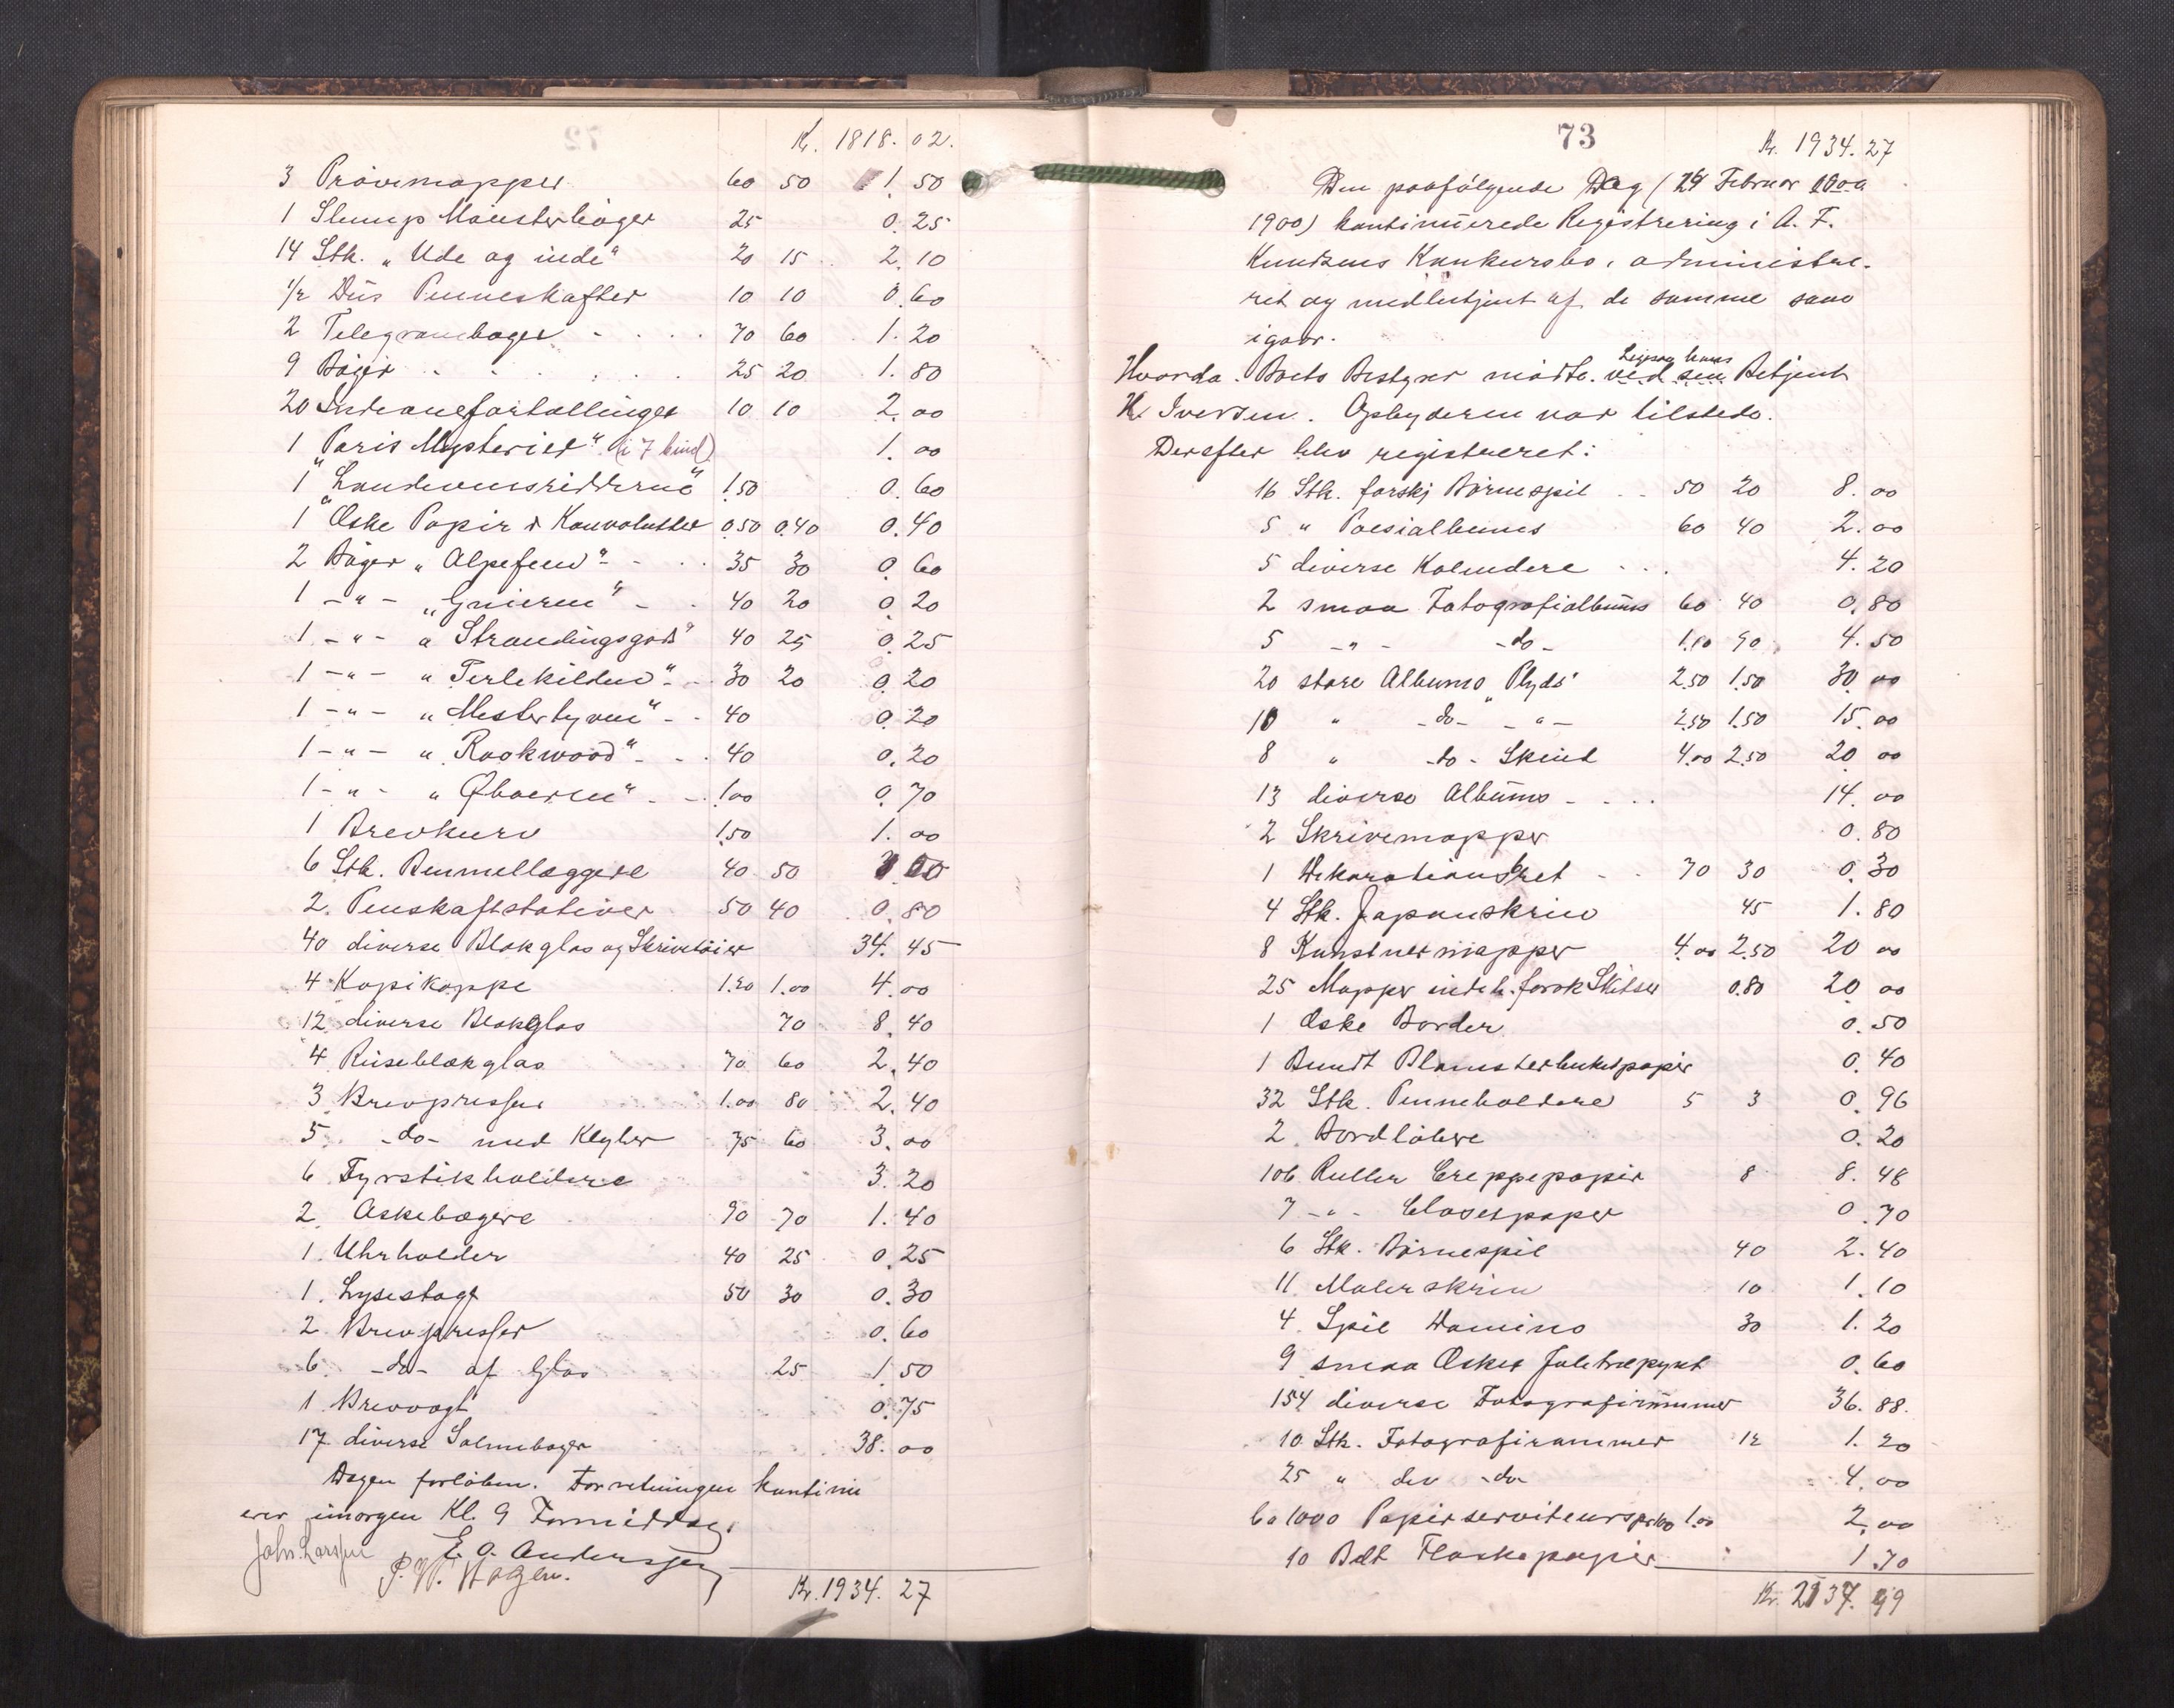 Kr. 1818. 02.
3 Prövemapper 60 50 1. 50
1 Slump Mönsterböger 25 0. 25
14 Stk. „Ude og inde" 20 15 2. 10
1/2 Dus Penneskafter 10 10 0. 60
2 Telegrambøger 70 60 1. 20
9 Böger 25 20 1. 80
20 Indianefortællinger 10 10 2. 00
1 „Paris Mysterier" (i 7 bind) 1. 00
1 „Landevensridderne" 1.50 0. 60
1 Æske Papir & Konvolutter 0.50 0.40 0. 40
2 Böger „Alpefeen" 35 30 0. 60
1 -"- „Gnieren" 40 20 0. 20
1 -"- „Strandingsgods" 40 25 0. 25
1 -"- „Perlekilden" 30 20 0. 20
1 -"- „Mestertyven" 40 0. 20
1 -"- „Rookwood" 40 0. 20
1 -"- 1.00 0. 70
1 Brevkurv 1.50 1. 00
6 Stk. 40 50 00
2. Penskaftstativer 50 40 0. 80
40 diverse Blækglas og Skrivetöier 34. 45
4 Kopikoppe 1.20 1.00 4. 00
12 diverse Blækglas 70 8. 40
4 Reiseblækglas 70 60 2. 40
3 Brevpresser 1.00 80 2. 40
5. -do- med Kugler 75 60 3. 00
6 Fyrstikholdere 3. 20
2. Askebægere 90 70 1. 40
1. Uhrholder 40 25 0. 25
1. Lysestage 50 30 0. 30
2. Brevpresser 0. 60
6. -do- af Glas 25 1. 50
1 Brevvægt 0. 75
17 diverse Salmebøger 38. 00
Dagen forløben. Forretningen kontinu
erer imorgen Kl. 9 Formiddag.
Johs. Larssen E. O. Anderssen
P. W.
Kr. 1934. 27
73
Kr. 1934. 27
Den paafölgende Dag (24 Februar
1900) kontinuerede Registrering i A. F.
Knudsens Konkursbo, administre-
ret og medbetjent af de samme som
igaar.
Hvorda. Boets Bestyrer mödte. ved sin Betjent
H. Iversen. Opbyderen var tilstede.
Derefter blev registreret:
16 Stk. forskj Börnespil 50 20 8. 00
5 " Poesialbums 60 40 2. 00
5 diverse Kalendere 4. 20
2 smaa Fotografialbums 60 40 0. 80
5 -"- -do- 90 4. 50
20 store Albums „Plyds" 2.50 1.50 30. 00
10 " -do- -"- 2.50 1.50 15. 00
8 " -do- Skind 4.00 2.50 20 00
13 diverse Albums 14. 00
2 Skrivemapper 0. 80
1 Dekorationsbret 70 30 0. 30
4 Stk. Japanskrin 45 1. 80
8 Kunstnermapper 4.00 2.50 20 00
25 Mapper indeh. forsk Skitser 0.80 20 00
1 Æske Border 0. 50
1 Bundt Blomsterbuketpapir 0. 40
32 Stk. Penneholdere 5 3 0. 96
2. Bordlöbere 0. 20
106 Ruller Creppepapir 8 8. 48
7 -"- Closetpaper 0. 70
6 Stk. Börnespil 40 2. 40
11 Malerskrin 10 1. 10
4. Spil Domino 30 1. 20
9 smaa Æsker Juletræpynt 0. 60
154 diverse Fotografirammer 36. 88.
10 Stk. Fotografirammer 12 1. 20
25 " div -do- 4. 00
Ca 1000 Papirserviteurs 1.00 2. 00
10 Bdt Flaskepapir 1. 70
Kr. 2137. 99